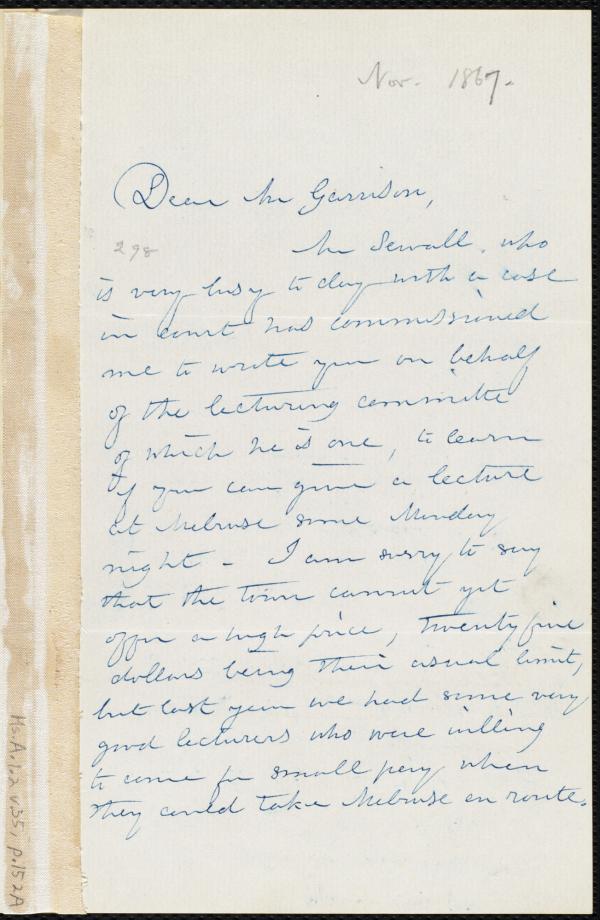 Nov. 1867.
Dear Mr Garrison,
298
Mr Sewall, who
is very busy to day with a case
in court has commissioned
me to write you on behalf
of the lecturing committe
of which he is one, to learn
if you can give a lecture
at Melrose some Monday
night - I am sorry to say
that the town cannot yet
offer a high price, twenty five
dollars being their usual limit,
but last year we had some very
good lecturers who were willing
to come for small pay when
they could take Melrose en route.
Ms.A.1.2 v.35, p.152A